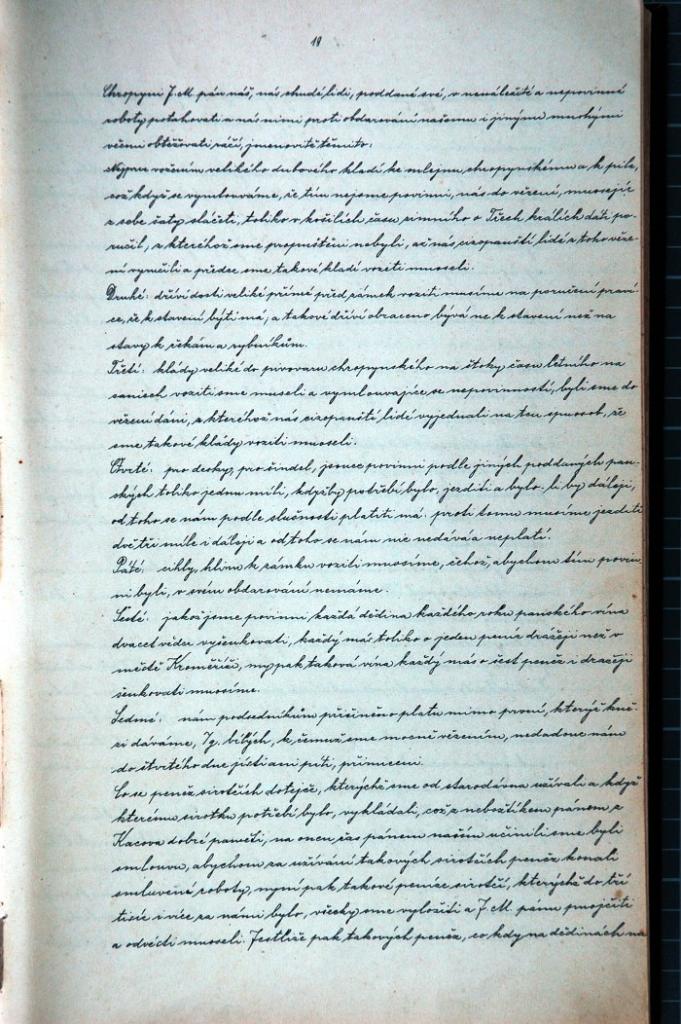 19
Chropyni J. M. pán náš, nás chudé lidi, poddané své, v nenáležité a nepovinné
roboty potahovati a nás nimi proti obdarování našemu i jinými mnohými
věcmi obtěžovati ráčí, jmenovitě těmito:
Nejprve vožením velikého dubového kladí ke mlejnu chropynskému a k pile,
což když se vymlouváme, že tím nejsme povinni, nás do vězení, musejíc
z sebe šaty slačeti, toliko v košilích času zimního o Třech králích dáti po-
ručil, z kteréhož sme propuštěni nebyli, až nás cizopanští lidé z toho věze-
ní vyručili a předce sme takové kladí voziti museli.
Druhé: dříví dosti veliké přímé před zámek voziti musíme na poručení praví-
ce, že k stavení býti má, a takové dříví obraceno bývá ne k stavení než na
stavy k řekám a rybníkům.
Třetí: klády veliké do pivovaru chropynského na štoky času letního na
saních voziti sme museli a vymlouvajíce se nepovinností, byli sme do
vězení dáni, z kteréhož nás cizopanští lidé vyjednali na ten spusob, že
sme takové klády voziti museli.
Čtvrté: pro desky, pro šindel, jsouce povinni podle jiných poddaných pan-
ských toliko jednu míli, když by potřebí bylo, jezditi a bylo-li by dáleji,
od toho se nám podle slušnosti platiti má. proti tomu musíme jezditi
dvě tři míle i dáleji a od toho se nám nic nedává a neplatí.
Páté: cihly, hlínu k zámku voziti musíme, čehož, abychom tím povin-
ni byli, v svém obdarování nemáme.
Šesté: jakož jsme povinni každá dědina každého roku panského vína
dvacet věder vyšenkovati, každý máz toliko o jeden peníz dražeji než v
městě Kroměříži, my pak taková vína každý máz o šest peněz i dražeji
šenkovati musíme.
Sedmé: nám podsedníkům přičiněno platu mimo první, kterýž kně-
zi dáváme, 7 g. bílých, k čemuž sme mocně vězením, nedadouc nám
do čtvrtého dne jísti ani píti, přinuceni.
Co se peněz sirotčích dotejče, kterýchž sme od starodávna užívali a když
kterému sirotku potřebí bylo, vykládali, což z nebožtíkem pánem z
Kacova dobré paměti, na onen čas pánem naším učinili sme byli
smlouvu, abychom za užívání takových sirotčích peněz konali
smluvené roboty, nyní pak takové peníze sirotčí, kterýchž do tří
tisíc i více za námi bylo, všecky sme vyložiti a J. M. pánu pusojčiti
a odvésti museli. Jestliže pak takových peněz, co kdy na dědinách na